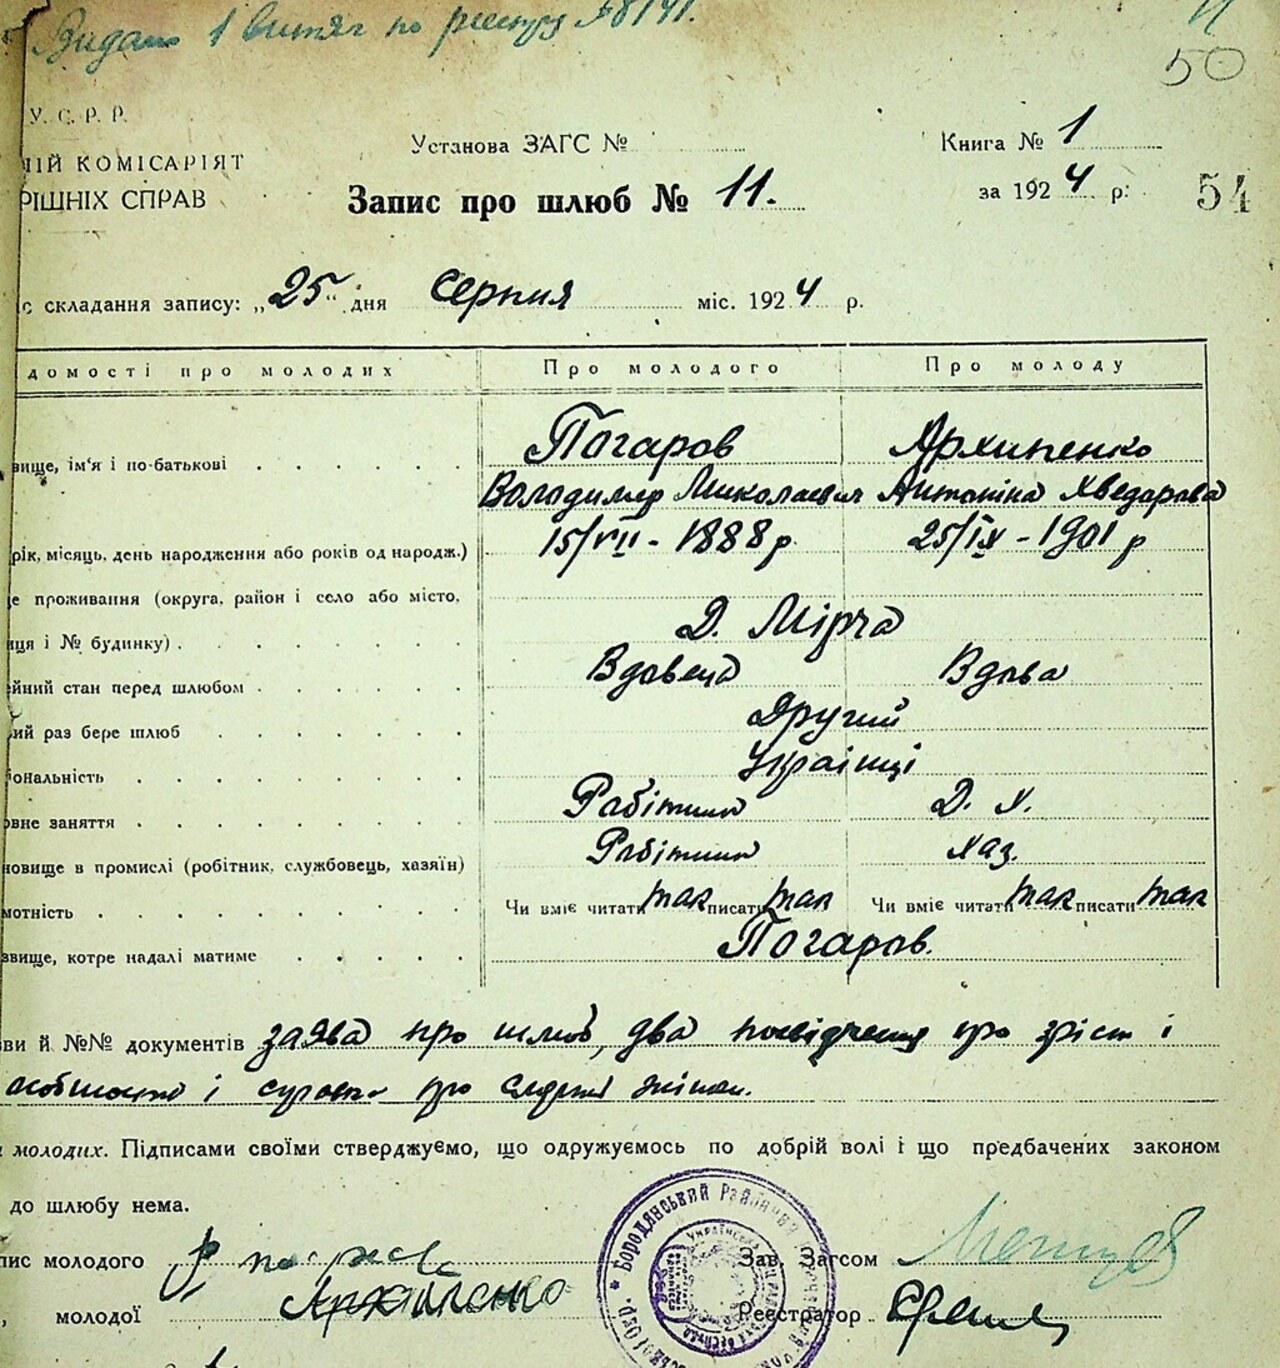 Видано 1 витяг по реєстру № 8141.
50
У. С. Р. Р.
НІЙ КОМІСАРІЯТ
РІШНІХ СПРАВ
Установа ЗАГС №
Книга № 1
Запис про шлюб № 11.
за 1924 р.
54
с складання запису: „25“ дня серпня міс. 1924 р.
домості про молодих Про молодого Про молоду
вище, ім'я і по-батькові Погаров Архипенко
Володимир Миколаевич Антоніна Хведорова
рік, місяць, день народження або років од народж.) 15/VII - 1888 р. 25/IX - 1901 р
е проживання (округа, район і село або місто,
иця і № будинку) Д. Мірча
ейний стан перед шлюбом Вдовець Вдова
ий раз бере шлюб Другий
іональність Українці
овне заняття Робітник Д. Х.
новище в промислі (робітник, службовець, хазяїн) Робітник хаз.
мотність Чи вміє читати так писати так Чи вміє читати так писати так
звище, котре надалі матиме Погаров.
зви й №№ документів заява про шлюб, два посвідчення про зріст і
особистости і про
молодих. Підписами своїми стверджуємо, що одружуємось по добрій волі і що предбачених законом
до шлюбу нема.
пис молодого
Зав. Загсом
молодої Архипенко
Реєстратор
Бородянський Районний